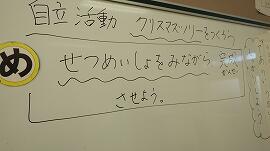 自立活動 クリスマスツリーをつくろう
め
せつめいしょをみながら、完成
かんせい
させよう。